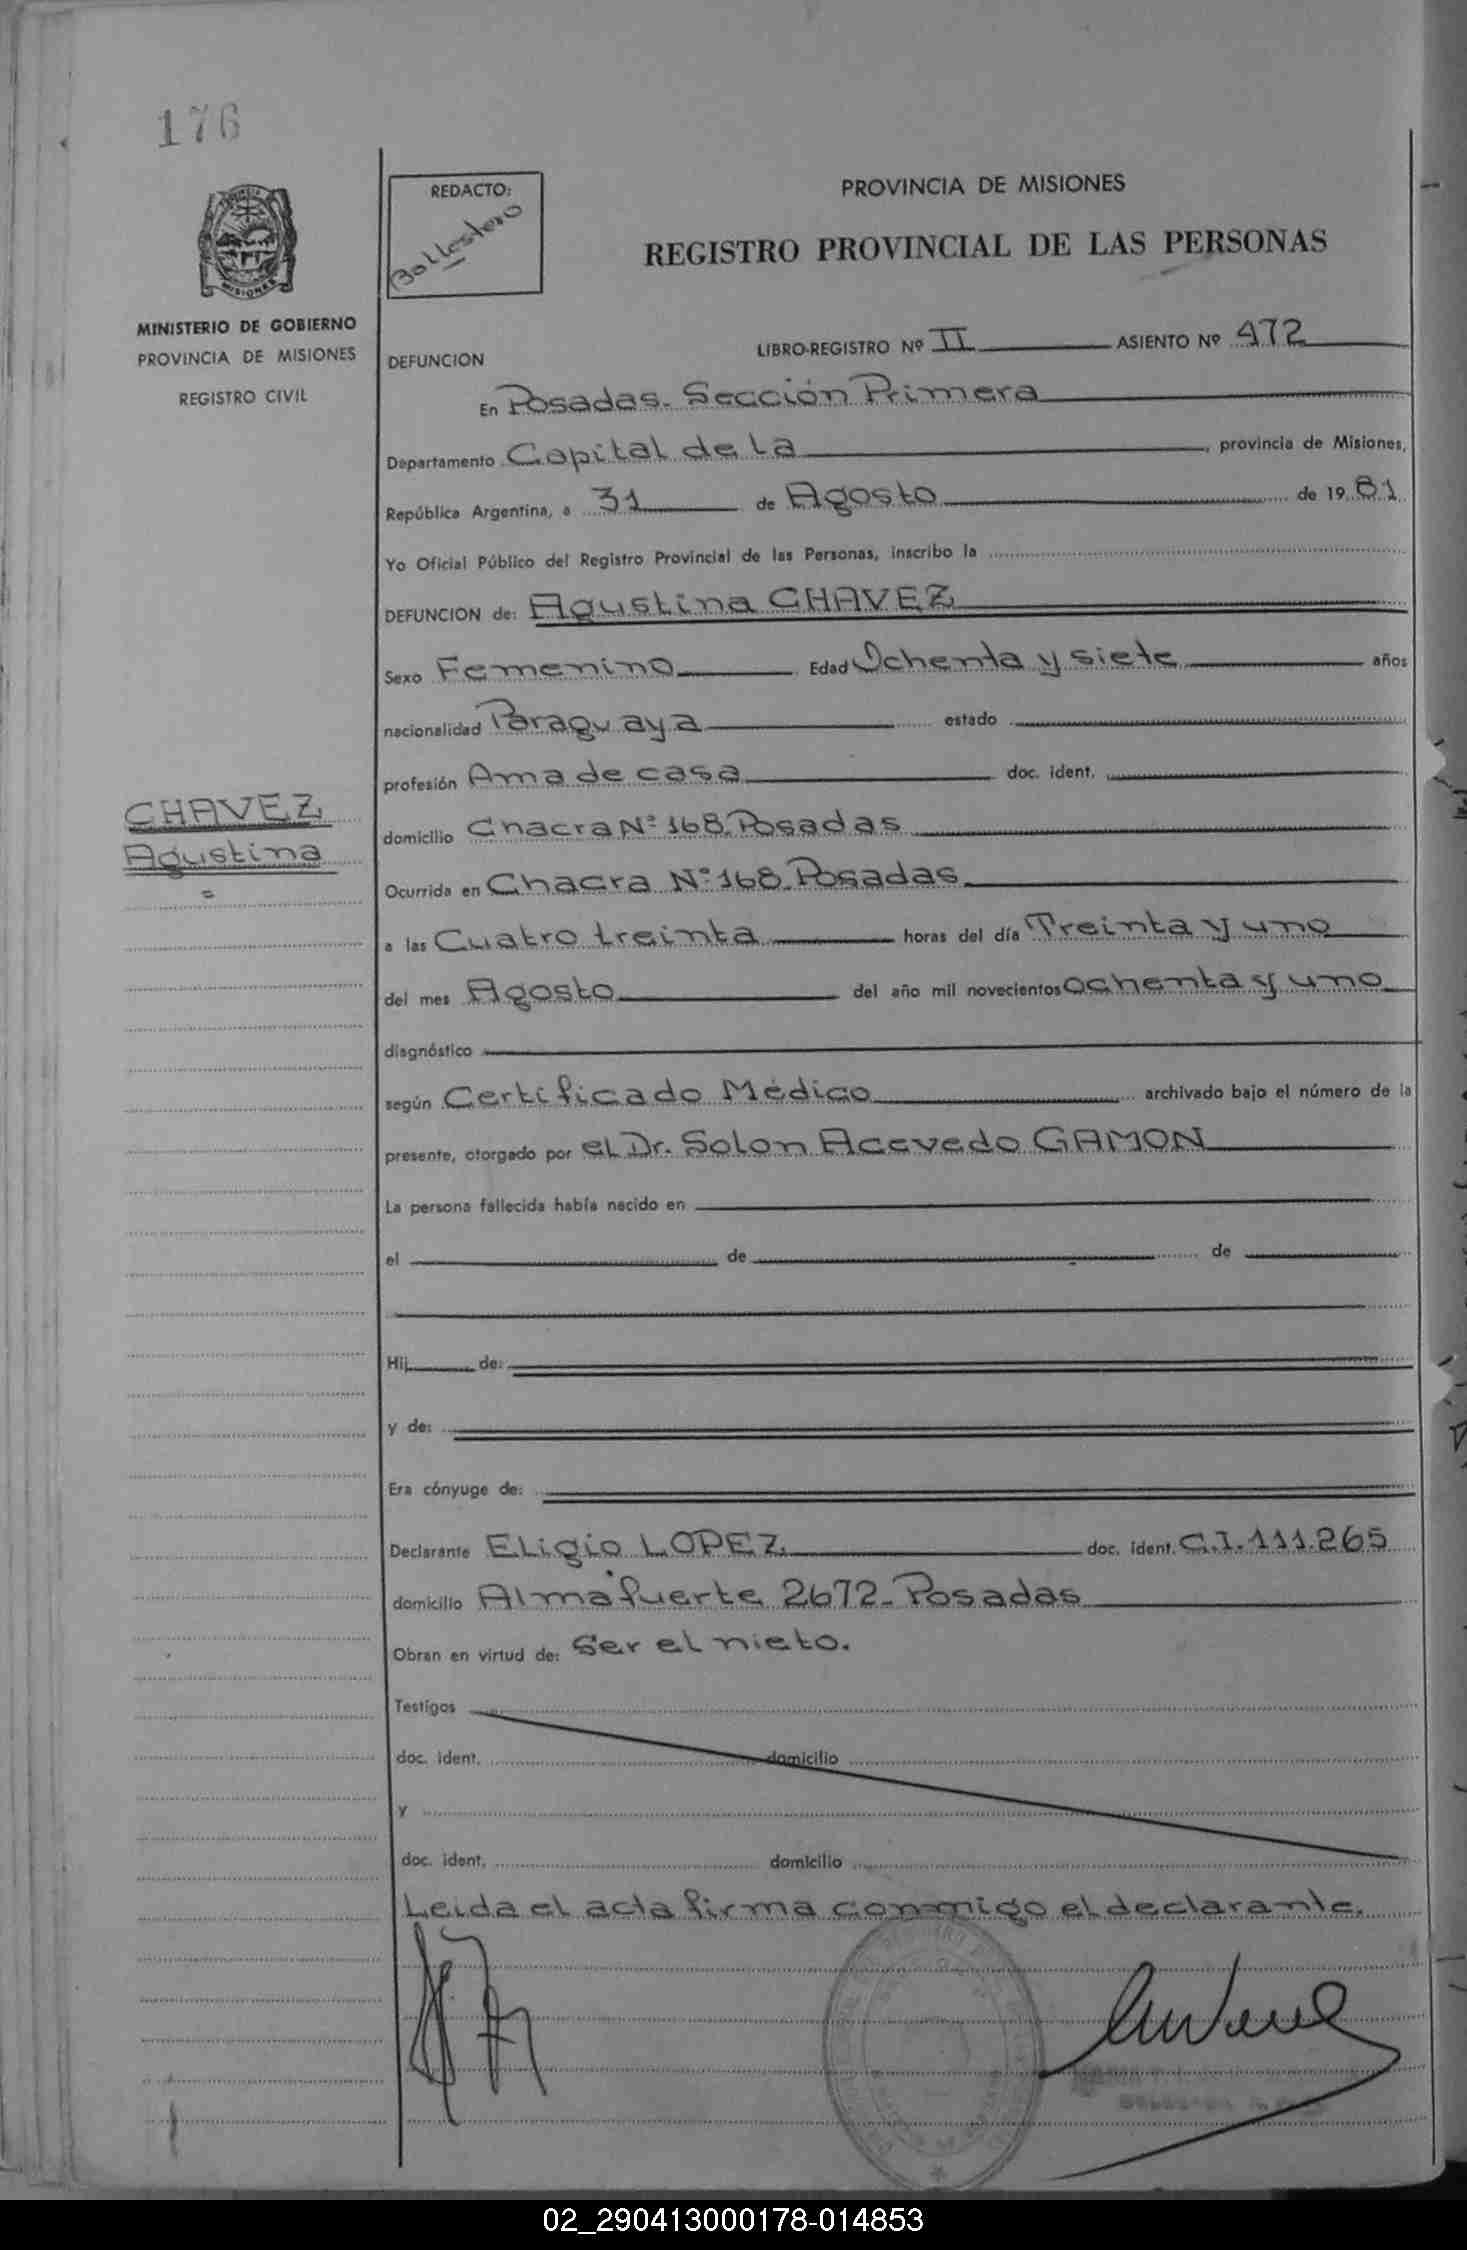 176
REDACTO:
Ballestero
PROVINCIA DE MISIONES
REGISTRO PROVINCIAL DE LAS PERSONAS
MINISTERIO DE GOBIERNO
PROVINCIA DE MISIONES
REGISTRO CIVIL
DEFUNCION
LIBRO-REGISTRO Nº II ASIENTO Nº 472
En Posadas. Sección Primera
Departamento Capital de La, provincia de Misiones,
República Argentina, a 31 de Agosto de 1981
Yo Oficial Público del Registro Provincial de las Personas, inscribo la
DEFUNCION de: Agustina CHAVEZ
Sexo Femenino Edad Ochenta y siete años
nacionalidad Paraguaya estado
profesión Ama de casa doc. ident.
CHAVEZ
Agustina
domicilio Chacra Nº 168. Posadas
Ocurrida en Chacra Nº 168. Posadas
a las Cuatro treinta horas del día Treinta y uno
del mes Agosto del año mil novecientos ochenta y uno
diagnóstico
según Certificado Médico archivado bajo el número de la
presente, otorgado por el Dr. Solon Acevedo GAMON
La persona fallecida había nacido en
el de de
Hij de:
y de:
Era cónyuge de:
Declarante Eligio LOPEZ. doc. ident. C.I. 111.265
domicilio Almafuerte 2672. Posadas
Obran en virtud de: Ser el nieto.
Testigos
doc. ident. domicilio
y
doc. ident. domicilio
Leida el acta firma conmigo el declarante.
02_290413000178-014853